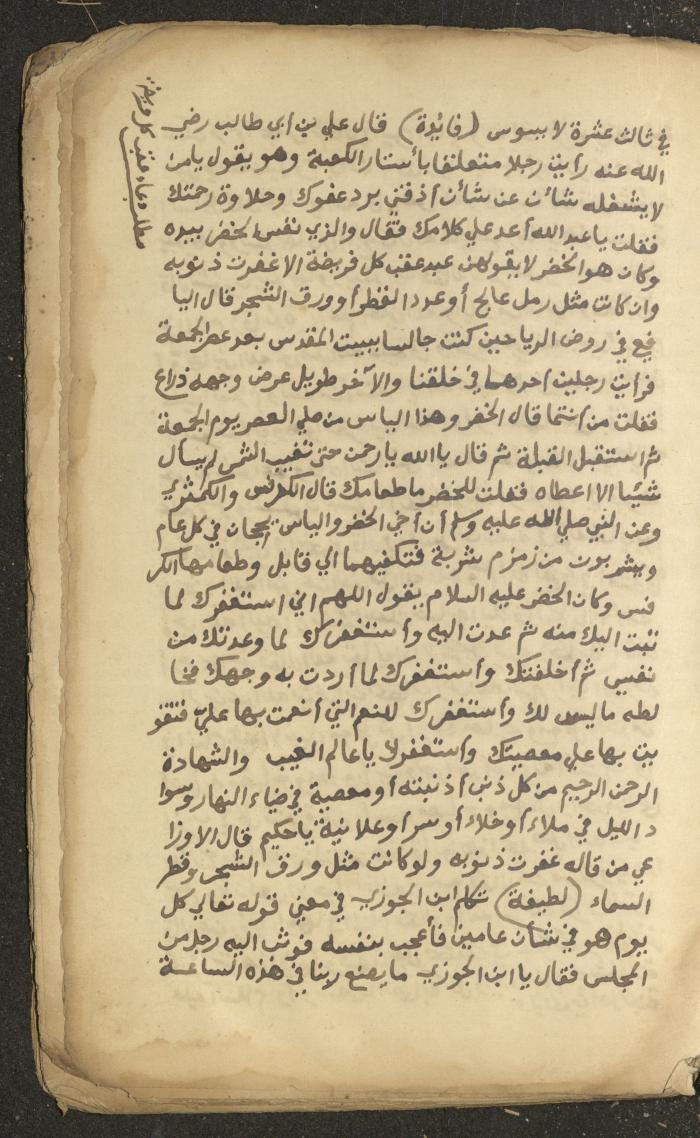 مطلب دعاء عقب كل فريضة
في ثالث عشرة لا ببسوس (فائدة) قال علي بن أبي طالب رضي
الله عنه رأيت رجلا متعلقا بأستار الكعبة وهو يقول يا من
لا يشغله شأن عن شأن أذقني برد عفوك وحلاوة رحمتك
فقلت يا عبد الله أعد علي كلامك فقال والذي نفس الخضر بيده
وكان هو الخضر لا يقولهن عبد عقب كل فريضة الا غفرت ذنوبه
وان كانت مثل رمل عالج أو عدد القطر أو ورق الشجر قال اليا
فعي في روض الرياحين كنت جالسا ببيت المقدس بعد عصر الجمعة
فرأيت رجلين أحدهما في خلقنا والآخر طويل عرض وجهه ذراع
فقلت من أنتما قال الخضر وهذا الياس من صلي العصر يوم الجمعة
ثم استقبل القبلة ثم قال يا الله يا رحمن حتى تغيب الشمس لم يسأل
شيئا الا اعطاه فقلت للخضر ما طعامك قال الكرفس والكمثري
وعن النبي صلي الله عليه وسلم أن أخي الخضر والياس يحجان في كل عام
ويشربون من زمزم شربة فتكفيهما الي قابل وطعامهما الكر
فس وكان الخضر عليه السلام يقول اللهم اني استغفرك لما
تبت اليك منه ثم عدت اليه وأستغفرك لما وعدتك من
نفسي ثم أخلفتك وأستغفرك لما أردت به وجهك فخا
لطه ما ليس لك وأستغفرك للنعم التي أنعمت بها علي فتقو
يت بها علي معصيتك وأستغفرك يا عالم الغيب والشهادة
الرحمن الرحيم من كل ذنب أذنبته أو معصية في ضياء النهار وسوا
د الليل في ملاء أو خلاء أو سر أو علانية يا حكيم قال الاوزا
عي من قاله غفرت ذنوبه ولو كانت مثل ورق الشجر وقطر
السماء (لطيفة) تكلم ابن الجوزي في معني قوله تعالي كل
يوم هو في شأن عامين فأعجب بنفسه فوثب اليه رجل من
المجلس فقال يا ابن الجوزي ما يصنع ربنا في هذه الساعة